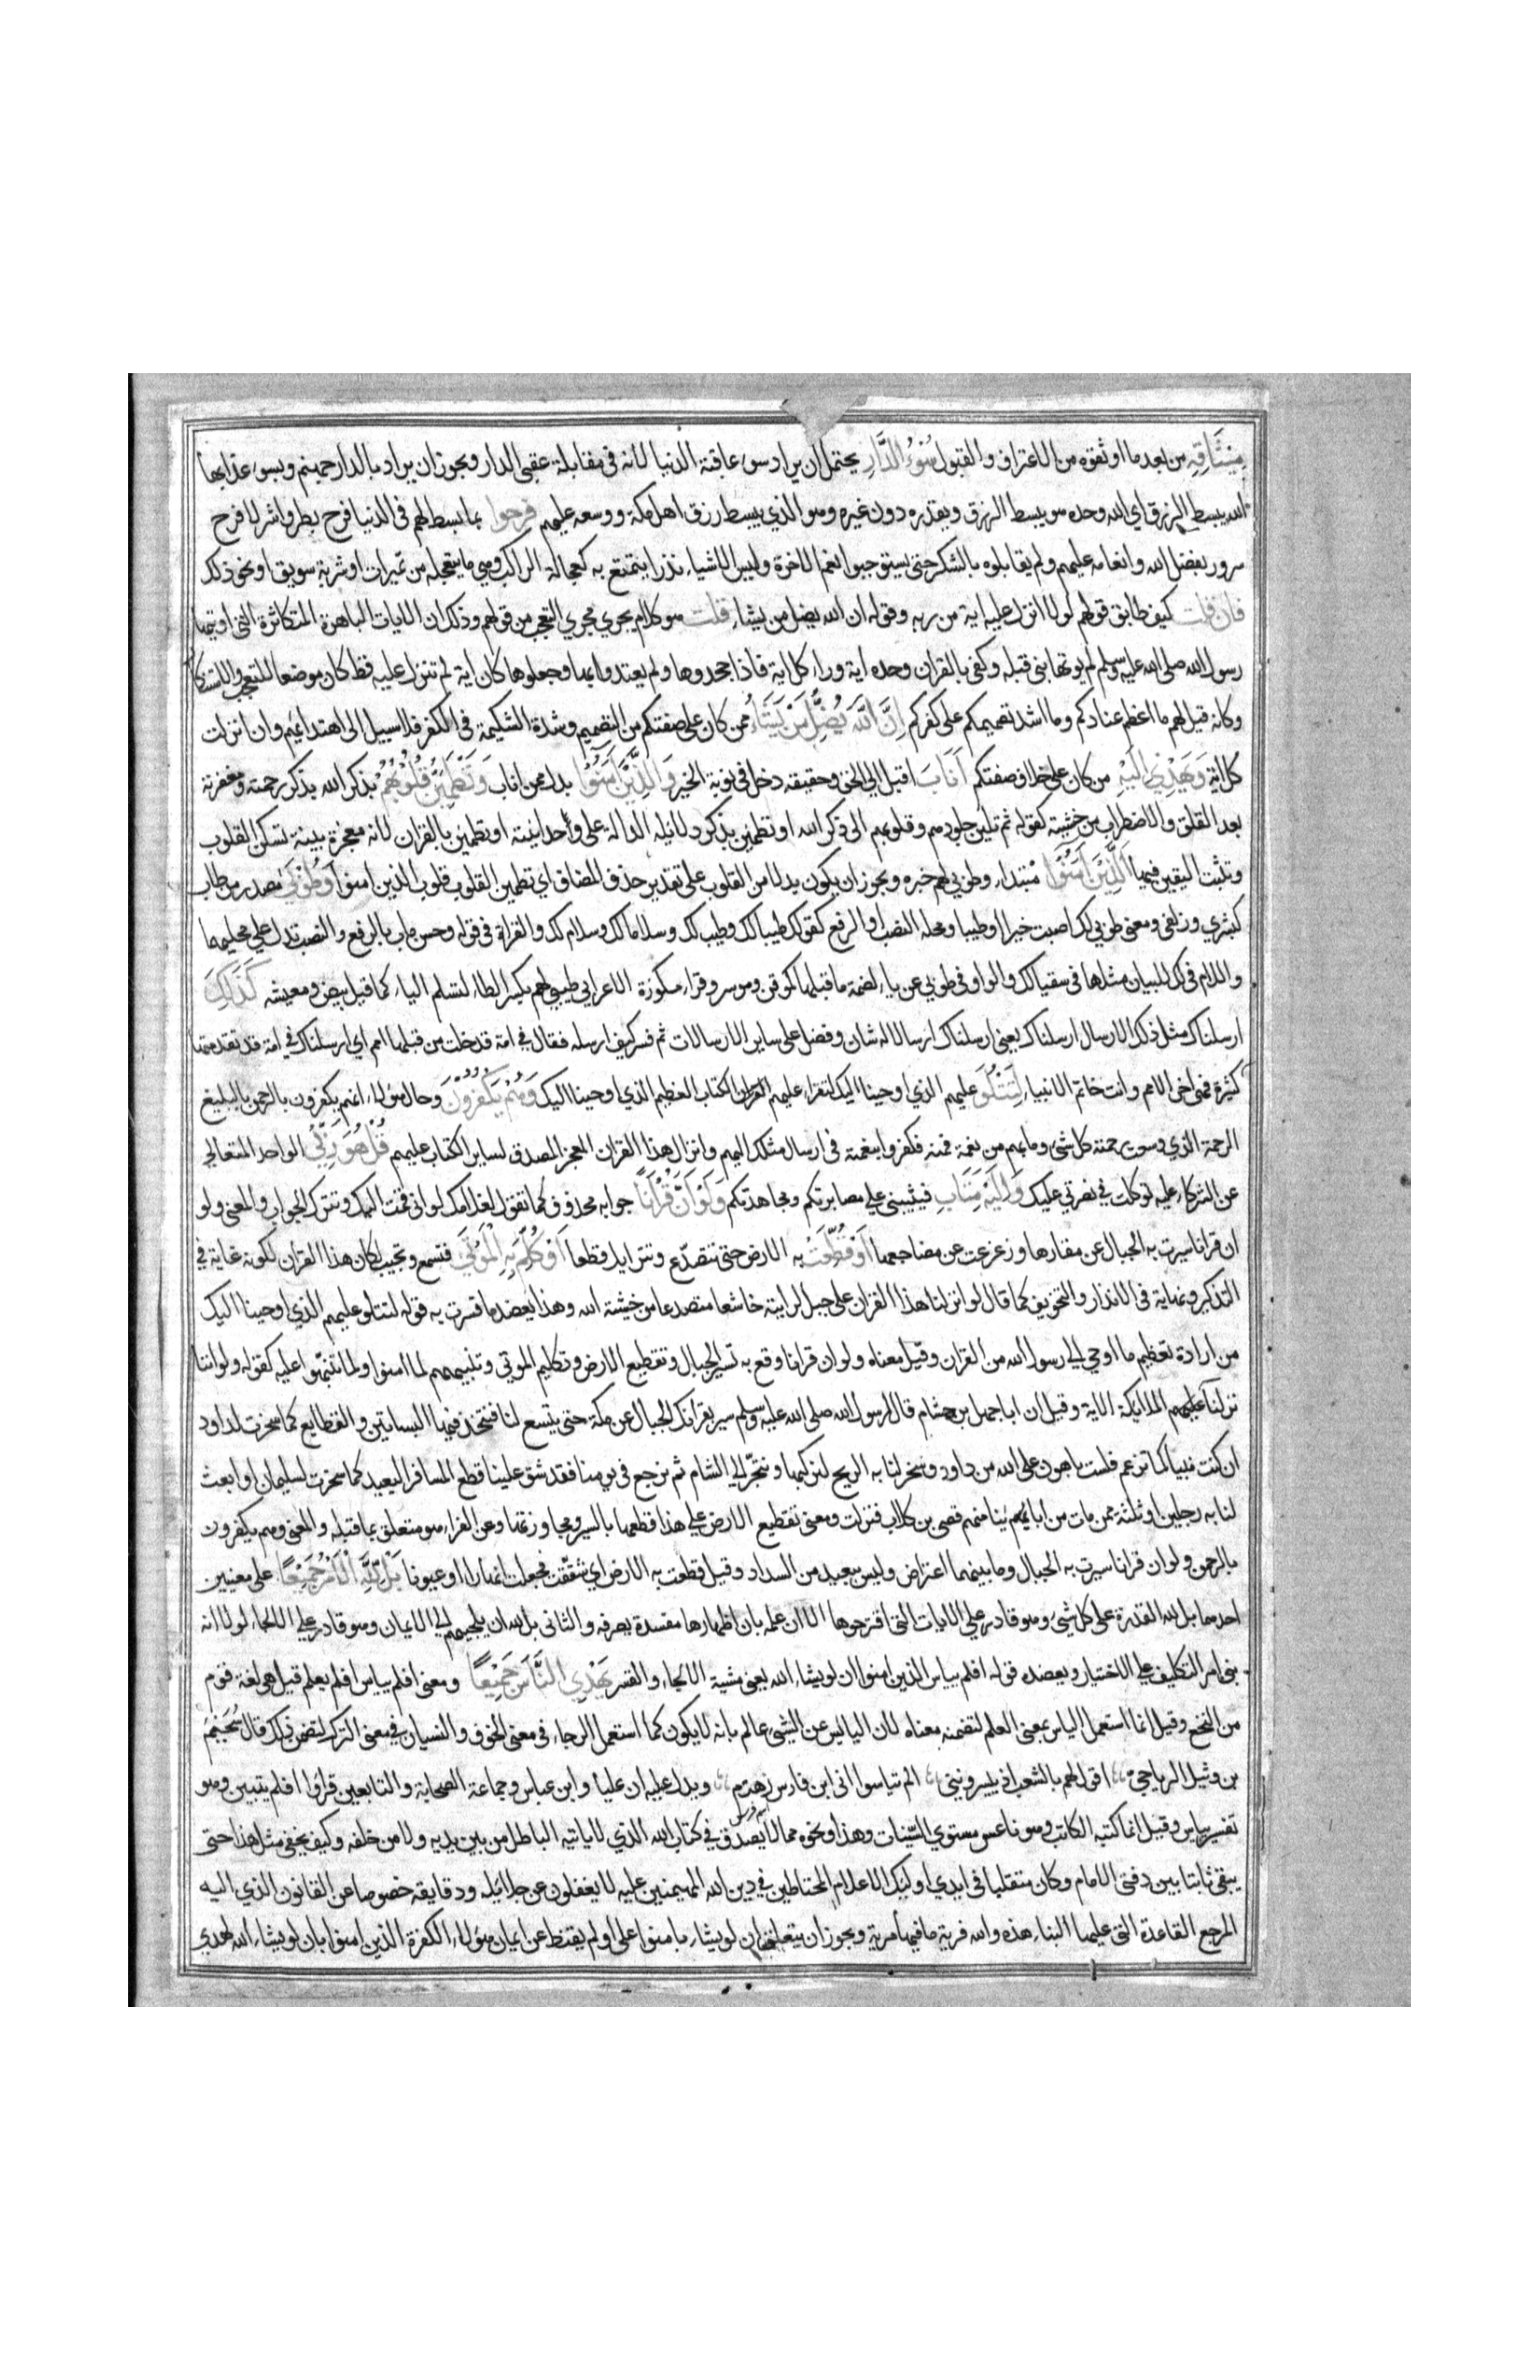 مِيثَاقِهِ من بعد ما اوثقوه من الاعتراف والقبول سُوءُ الدَّارِ يحتمل ان يراد سوء عاقبة الدنيا لانه في مقابلة عقبى الدار ويجوز ان يراد بالدار جهنم وبسوء عذابها
الله يبسط الرزق اي الله وحده هو يبسط الرزق ويقدره دون غيره وهو الذي يبسط رزق اهل مكة ووسعه عليهم فرحوا بما بسط لهم في الدنيا فرح بطر واشر لا فرح
سرور بفضل الله وانعامه عليهم ولم يقابلوه بالشكر حتى يستوجبوا نعيم الاخرة وليس الاشياء نذرا يتمتع به كعجالة الراكب وهي ما يتعجله من تميرات او شربة سويق او نحو ذلك
فان قلت كيف طابق قولهم لولا انزل عليه اية من ربه وقوله ان الله يضل من يشاء قلت هو كلام يجري مجري التعجب من قولهم وذلك ان الايات الباهرة المتكاثرة التي اوتيها
رسول الله صلى الله عليه وسلم لم يوتها نبي قبله وكفى بالقران وحده اية وراء كل اية فاذا جحدوها ولم يعتدوا بها وجعلوها كان اية لم تنزل عليه قط كان موضعا للتعجب والاستنكار
وكانه قيل لهم ما اعظم عنادكم وما اشد تصميمكم على كفركم اِنَّ اللَّهَ يُضِلُّ مَنْ يَشَاءُ ممن كان على صفتكم من التصميم وشدة الشكيمة في الكفر فلا سبيل الى اهتدائهم وان انزلت
كل اية وَيَهْدِي اِلَيْهِ من كان على خلاف صفتكم اَنَابَ اقبل الي الحق وحقيقته دخل في نوبة الخير وَالَّذِينَ اٰمَنُوا بدل من من اناب وَتَطْمَئِنُّ قُلُوبُهُمْ بذكر الله بذكر رحمته ومغفرته
بعد القلق والاضطراب من خشيته كقوله ثم تلين جلودهم وقلوبهم الى ذكر الله او تطمئن بذكر دلائله الدالة على وحدانيته او تطمئن بالقران لانه معجزة بينة تسكن القلوب
وتثبت اليقين فيها اَلَّذِينَ اٰمَنُوا مبتداء وطوبى لهم خبره ويجوز ان يكون بدلا من القلوب على تقدير حذف المضاف اي تطمئن القلوب قلوب الذين امنوا وَطُوبَى مصدر من طاب
كبشري وزلفى ومعنى طوبى لك اصبت خيرا وطيبا ومحله النصب او الرفع كقولك طيبا لك وطيب لك وسلاما لك وسلام لك والقراة في قوله وحسن ماب بالرفع والنصب تدل علي محليها
واللام في لك للبيان مثلها في سقيا لك والواو في طوبى عن ياء لضمة ما قبلها كموقن وموسر وقراء مكوزة الاعرابي طيبى لهم بكسر الطاء لتسلم الياء كما قيل بيض ومعيشة كَذَلِكَ
ارسلناك مثل ذلك الارسال ارسلناك يعني ارسلناك ارسالا له شان وفضل على ساير الارسالات ثم فسر كيف ارسله فقال في امة قد خلت من قبلها امم اي ارسلناك في امة قد تقدمتها
كثيرة فهي اخر الامم وانت خاتم الانبياء لِتَتْلُوَ عليهم الذي اوحينا اليك لتقراء عليهم القران الكتاب العظيم الذي اوحينا اليك وَهُمْ يَكْفُرُونَ وحال هؤلاء انهم يكفرون بالرحمن بالبليغ
الرحمة الذي وسعت رحمته كل شئ وما بهم من نعمة فمنه فكفروا بنعمته في ارسال مثلك اليهم وانزال هذا القران المعجز المصدق لساير الكتاب عليهم قُلْ هُوَ رَبِّي الواحد المتعالي
عن الشركاء عليه توكلت في نصرتي عليك وَاِلَيْهِ مَتَابِ فيثيبني علي مصابرتكم ومجاهدتكم وَلَوْ اَنَّ قُرْاٰنًا جوابه محذوف كما تقول لغلامك لو اني قمت اليك وتترك الجواب والمعنى ولو
ان قرانا سيرت به الجبال عن مقارها وزعزعت عن مضاجعها اَوْ قُطِّعَتْ به الارض حتى تتصدع وتتزايل قطعا اَوْ كُلِّمَ بِهِ الْمَوْتَى فتسمع وتجيب لكان هذا القران لكونه غاية في
التذكير ونهاية في الانذار والتخويف كما قال لو انزلنا هذا القران على جبل لرايته خاشعا متصدعا من خشية الله وهذا يعضد ما فسرت به قوله لتتلو عليهم الذي اوحينا اليك
من ارادة تعظيم ما اوحي الي رسول الله من القران وقيل معناه ولو ان قرانا وقع به تسيير الجبال وتقطيع الارض وتكليم الموتى وتنبيههم لما امنوا ولما تنبهوا عليه كقوله ولو اننا
نزلنا عليهم الملائكة الاية وقيل ان ابا جهل بن هشام قال لرسول الله صلى الله عليه وسلم سير بقرانك الجبال عن مكة حتى يتسع لنا فنتخذ فيها البساتين والقطايع كما سخرت لداود
ان كنت نبيا كما تزعم فلست باهون على الله من داود وسخر لنا به الريح لنركبها ونتجر الي الشام ثم نرجع في يومنا فقد شق علينا قطع المسافر البعيد كما سخرت لسليمان او ابعث
لنا به رجلين او ثلثة ممن مات من ابائنا منهم قصي بن كلاب فنزلت ومعنى تقطيع الارض علي هذا قطعها بالسير ومجاوزتها وعن الفراء هو متعلق بما قبله والمعنى وهم يكفرون
بالرحمن ولو ان قرانا سيرت به الجبال وما بينهما اعتراض وليس ببعيد من السداد وقيل قطعت به الارض اي شققت فجعلت انهارا او عيونا بَلْ لِلَّهِ الْاَمْرُ جَمِيعًا على معنيين
احدهما بل لله القدرة على كل شئ وهو قادر علي الايات التي اقترحوها الا ان علمه بان اظهارها مفسدة يصرفه والثاني بل لله ان يلجيهم الي الايمان وهو قادر علي الالجاء لولا انه
بنى امر التكليف علي الاختيار ويعضده قوله افلم يياس الذين امنوا ان لو يشاء الله يعني مشية الالجاء والقسر يَهْدِي النَّاسَ جَمِيعًا ومعنى افلم يياس افلم يعلم قيل هي لغة قوم
من النخع وقيل انما استعمل الياس بمعنى العلم لتضمنه معناه لان اليائس عن الشئ عالم بانه لا يكون كما استعمل الرجاء في معنى الخوف والنسيان في معنى الترك لتضمن ذلك قال سُحَيْمُ
بن وثيل الرياحي اقول لهم بالشعب اذ ييسرونني الم تياسوا اني ابن فارس زهدم ويدل عليه ان عليا وابن عباس وجماعة الصحابة والتابعين قراوا افلم يتبين وهو
تفسير يياس وقيل انما كتبه الكاتب وهو ناعس مستوي السينات وهذا ونحوه مما لا يصدق في كتاب الله الذي لا ياتيه الباطل من بين يديه ولا من خلفه وكيف يخفى مثل هذا حتى
يبقى ثابتا بين دفتي الامام وكان متقلبا في ايدي اوليك الاعلام المحتاطين في دين الله المهيمنين عليه لا يغفلون عن جلائله ودقايقه خصوصا عن القانون الذي اليه
المرجع القاعدة التي عليها البناء هذه والله فرية ما فيها مرية ويجوز ان يتعلق ان لو يشاء بامنوا على اولم يقنط عن ايمان هؤلاء الكفرة الذين امنوا بان لو يشاء الله لهدي